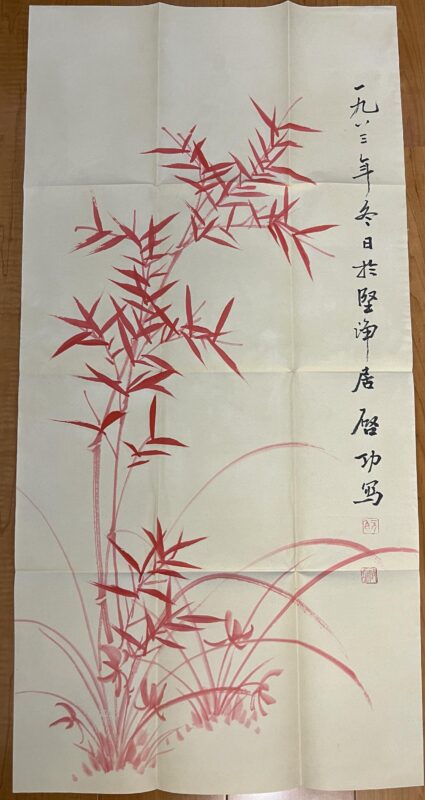 一九八三年冬日於堅淨居啓功寫